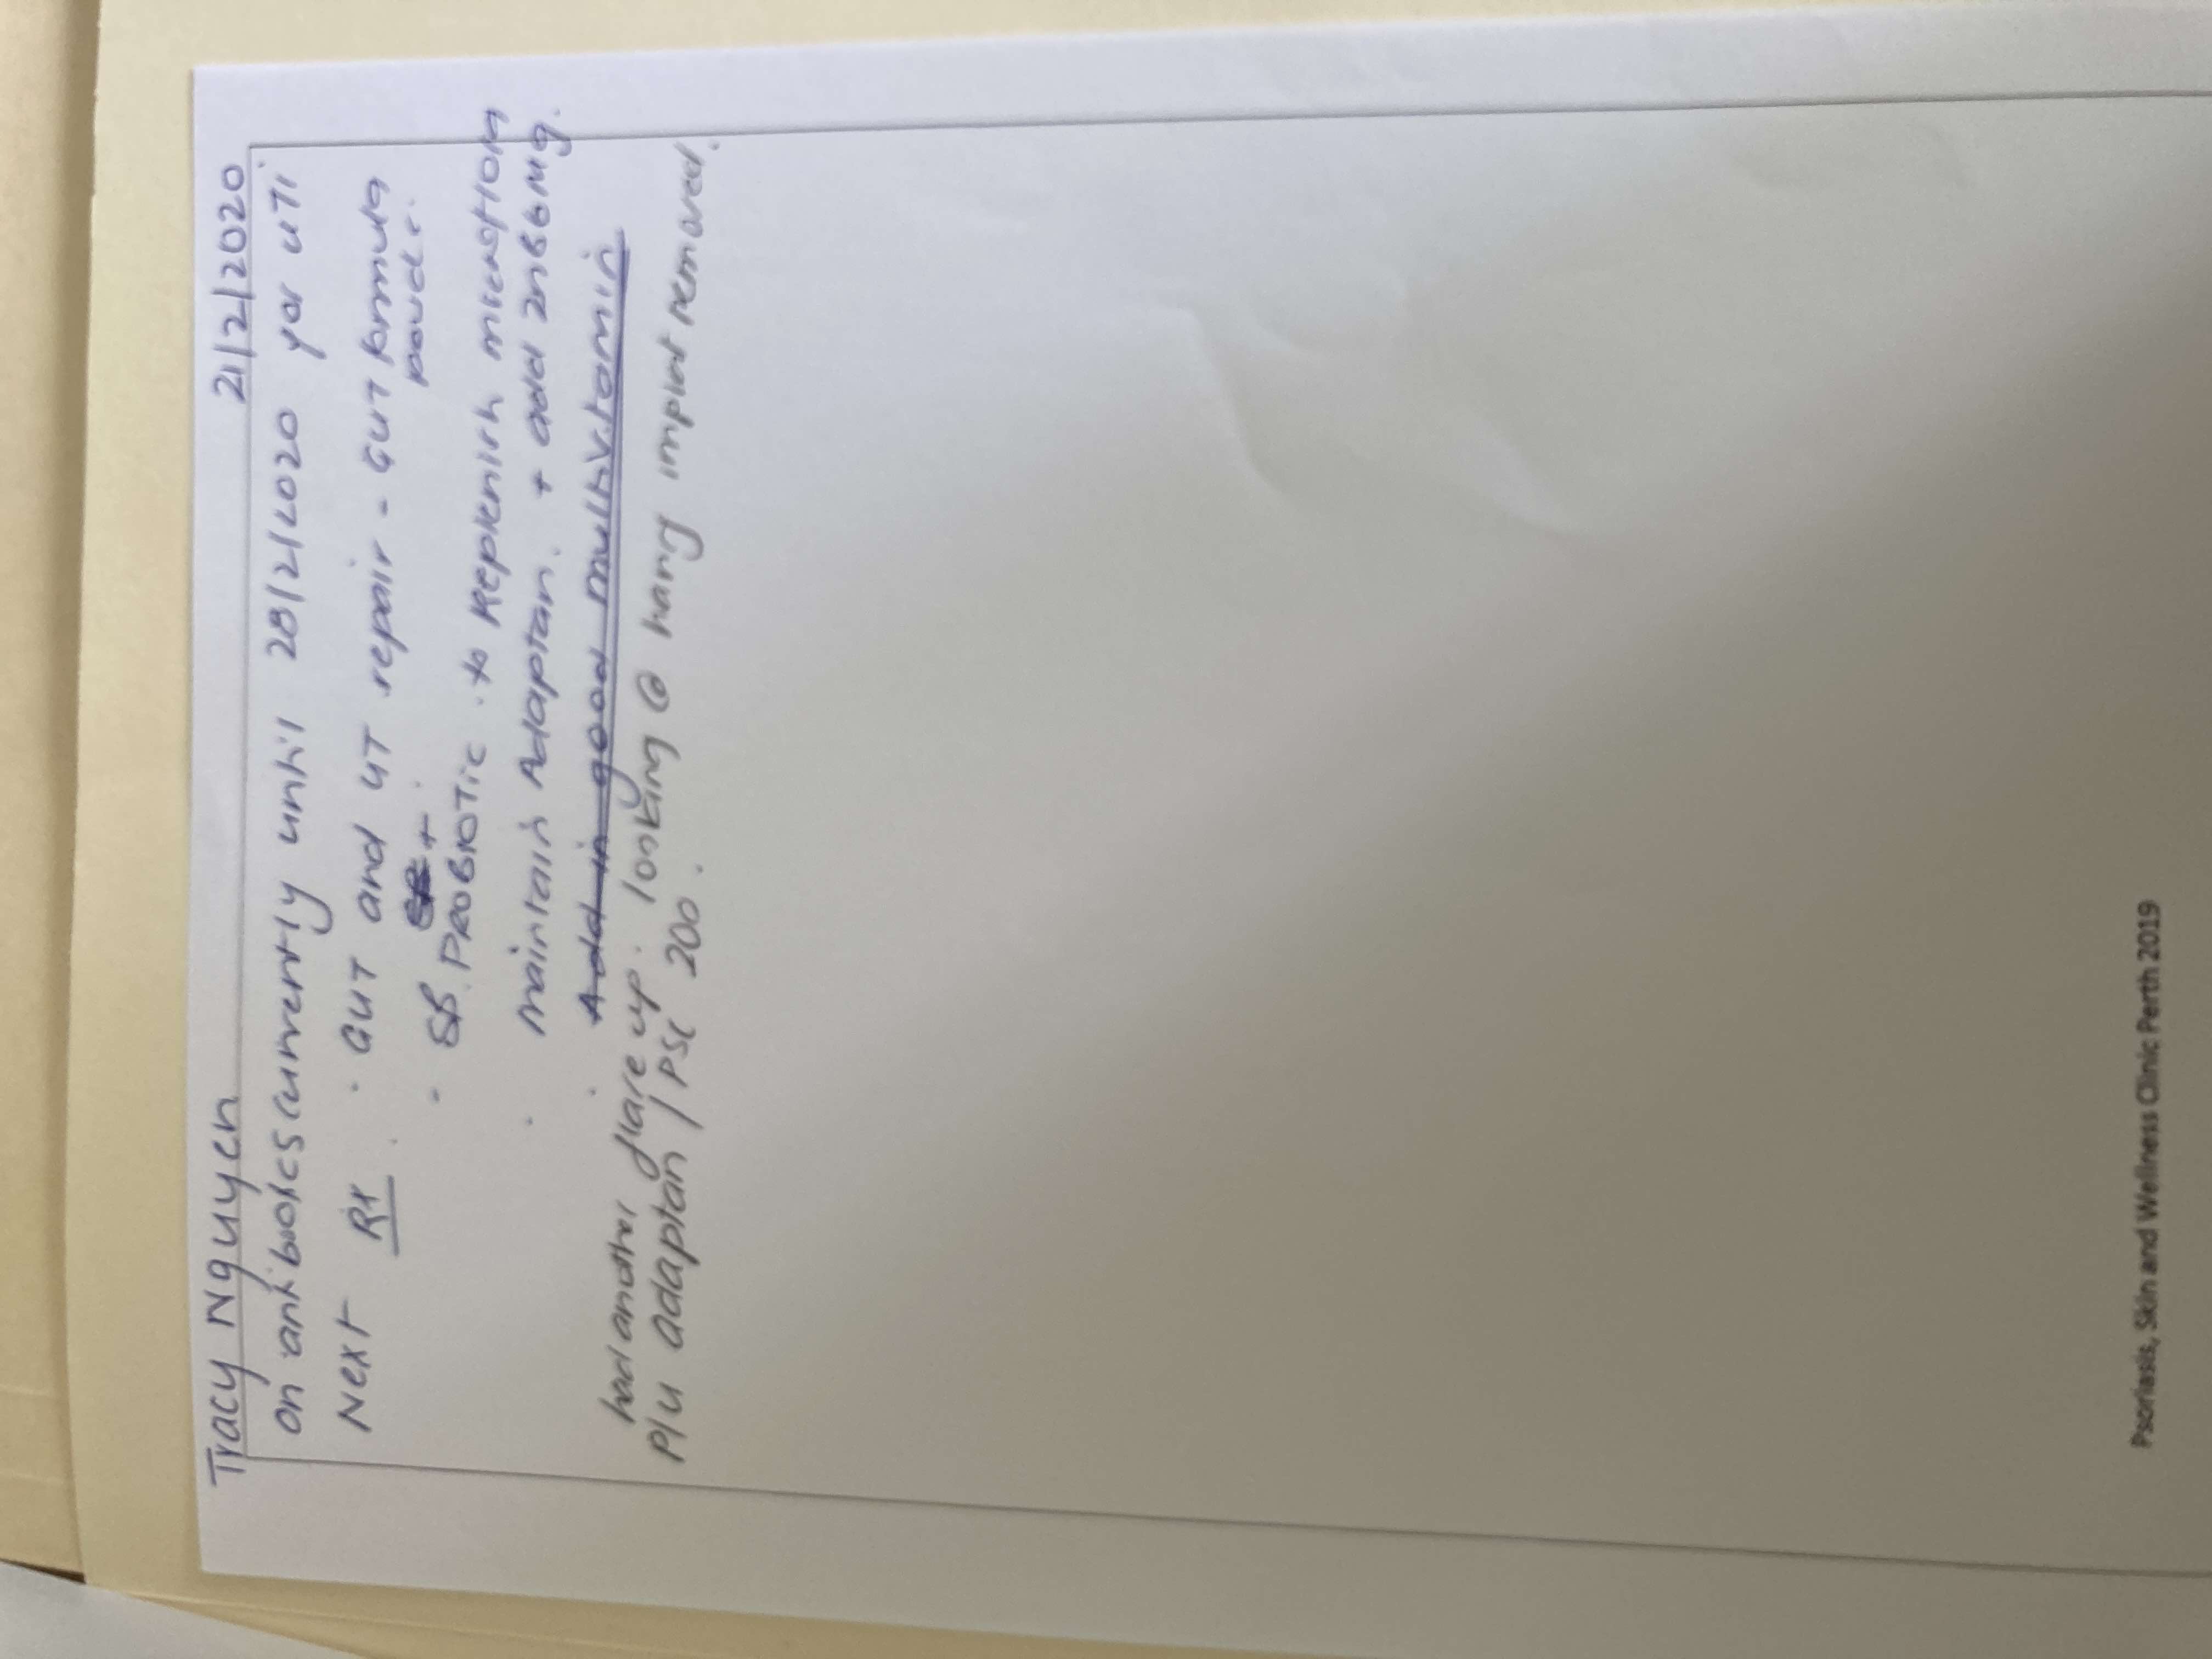 Tracy Nguyen 21/2/2020
on antibiotics currently until 28/2/2020 for UTI.
Next Rx. · GUT and UT repair - GUT formula
powder.
- SB + PROBIOTIC. to Replenish
· Maintain Adaptan. + add ZnB6Mg.
· Add in good multivitamin
had another flare up. looking @ having implant removed.
P/U adaptan / PSC 200.
Psoriasis, Skin and Wellness Clinic Perth 2019